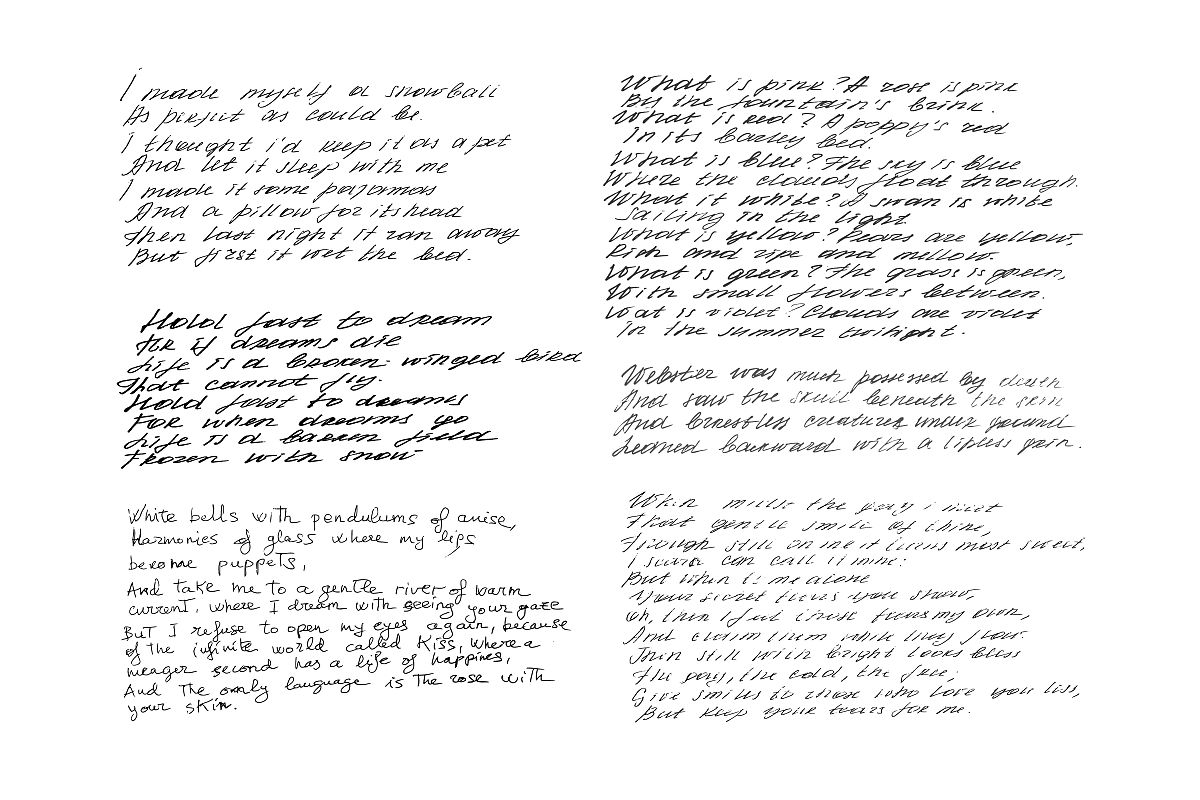 I made myself a snowball
As perfect as could be.
I thought i'd keep it as a pet
And let it sleep with me
I made it some pajamas
And a pillow for its head
Then last night it ran away
But first it wet the bed.
Hold fast to dream
For if dreams die
Life is a broken-winged bird
That cannot fly.
Hold fast to dreams
For when dreams go
Life is a barren field
Frozen with snow
White bells with pendulums of anise,
Harmonies of glass where my lips
become puppets,
And take me to a gentle river of warm
current, where I dream with seeing your gaze
But I refuse to open my eyes again, because
of the infinite world called Kiss, where a
meager second has a life of happines,
And The only language is The rose with
your skin.
What is pink? A rose is pink
By the fountain's brink.
What is red? A poppy's red
In its barley bed.
What is blue? The sky is blue
Where the clouds float through.
What it white? A swan is white
Sailing in the light
What is yellow? Pears are yellow,
Rich and ripe and mellow.
What is green? The grass is green,
With small flowers between.
Wat is violet? Clouds are violet
In the summer twilight.
Webster was much possessed by death
And saw the skull beneath the skin
And breastless creatures under ground
Leaned backward with a lipless grin.
When midst the gay i meet
That gentle smile of thine,
Though still on me it turns most sweet,
I scarce can call it mine:
But when to me alone
Your secret tears you show,
Oh, then I feel those tears my own,
And claim them while they flow.
Then still with bright looks bless
The gay, the cold, the free;
Give smiles to those who love you less,
But keep your tears for me.